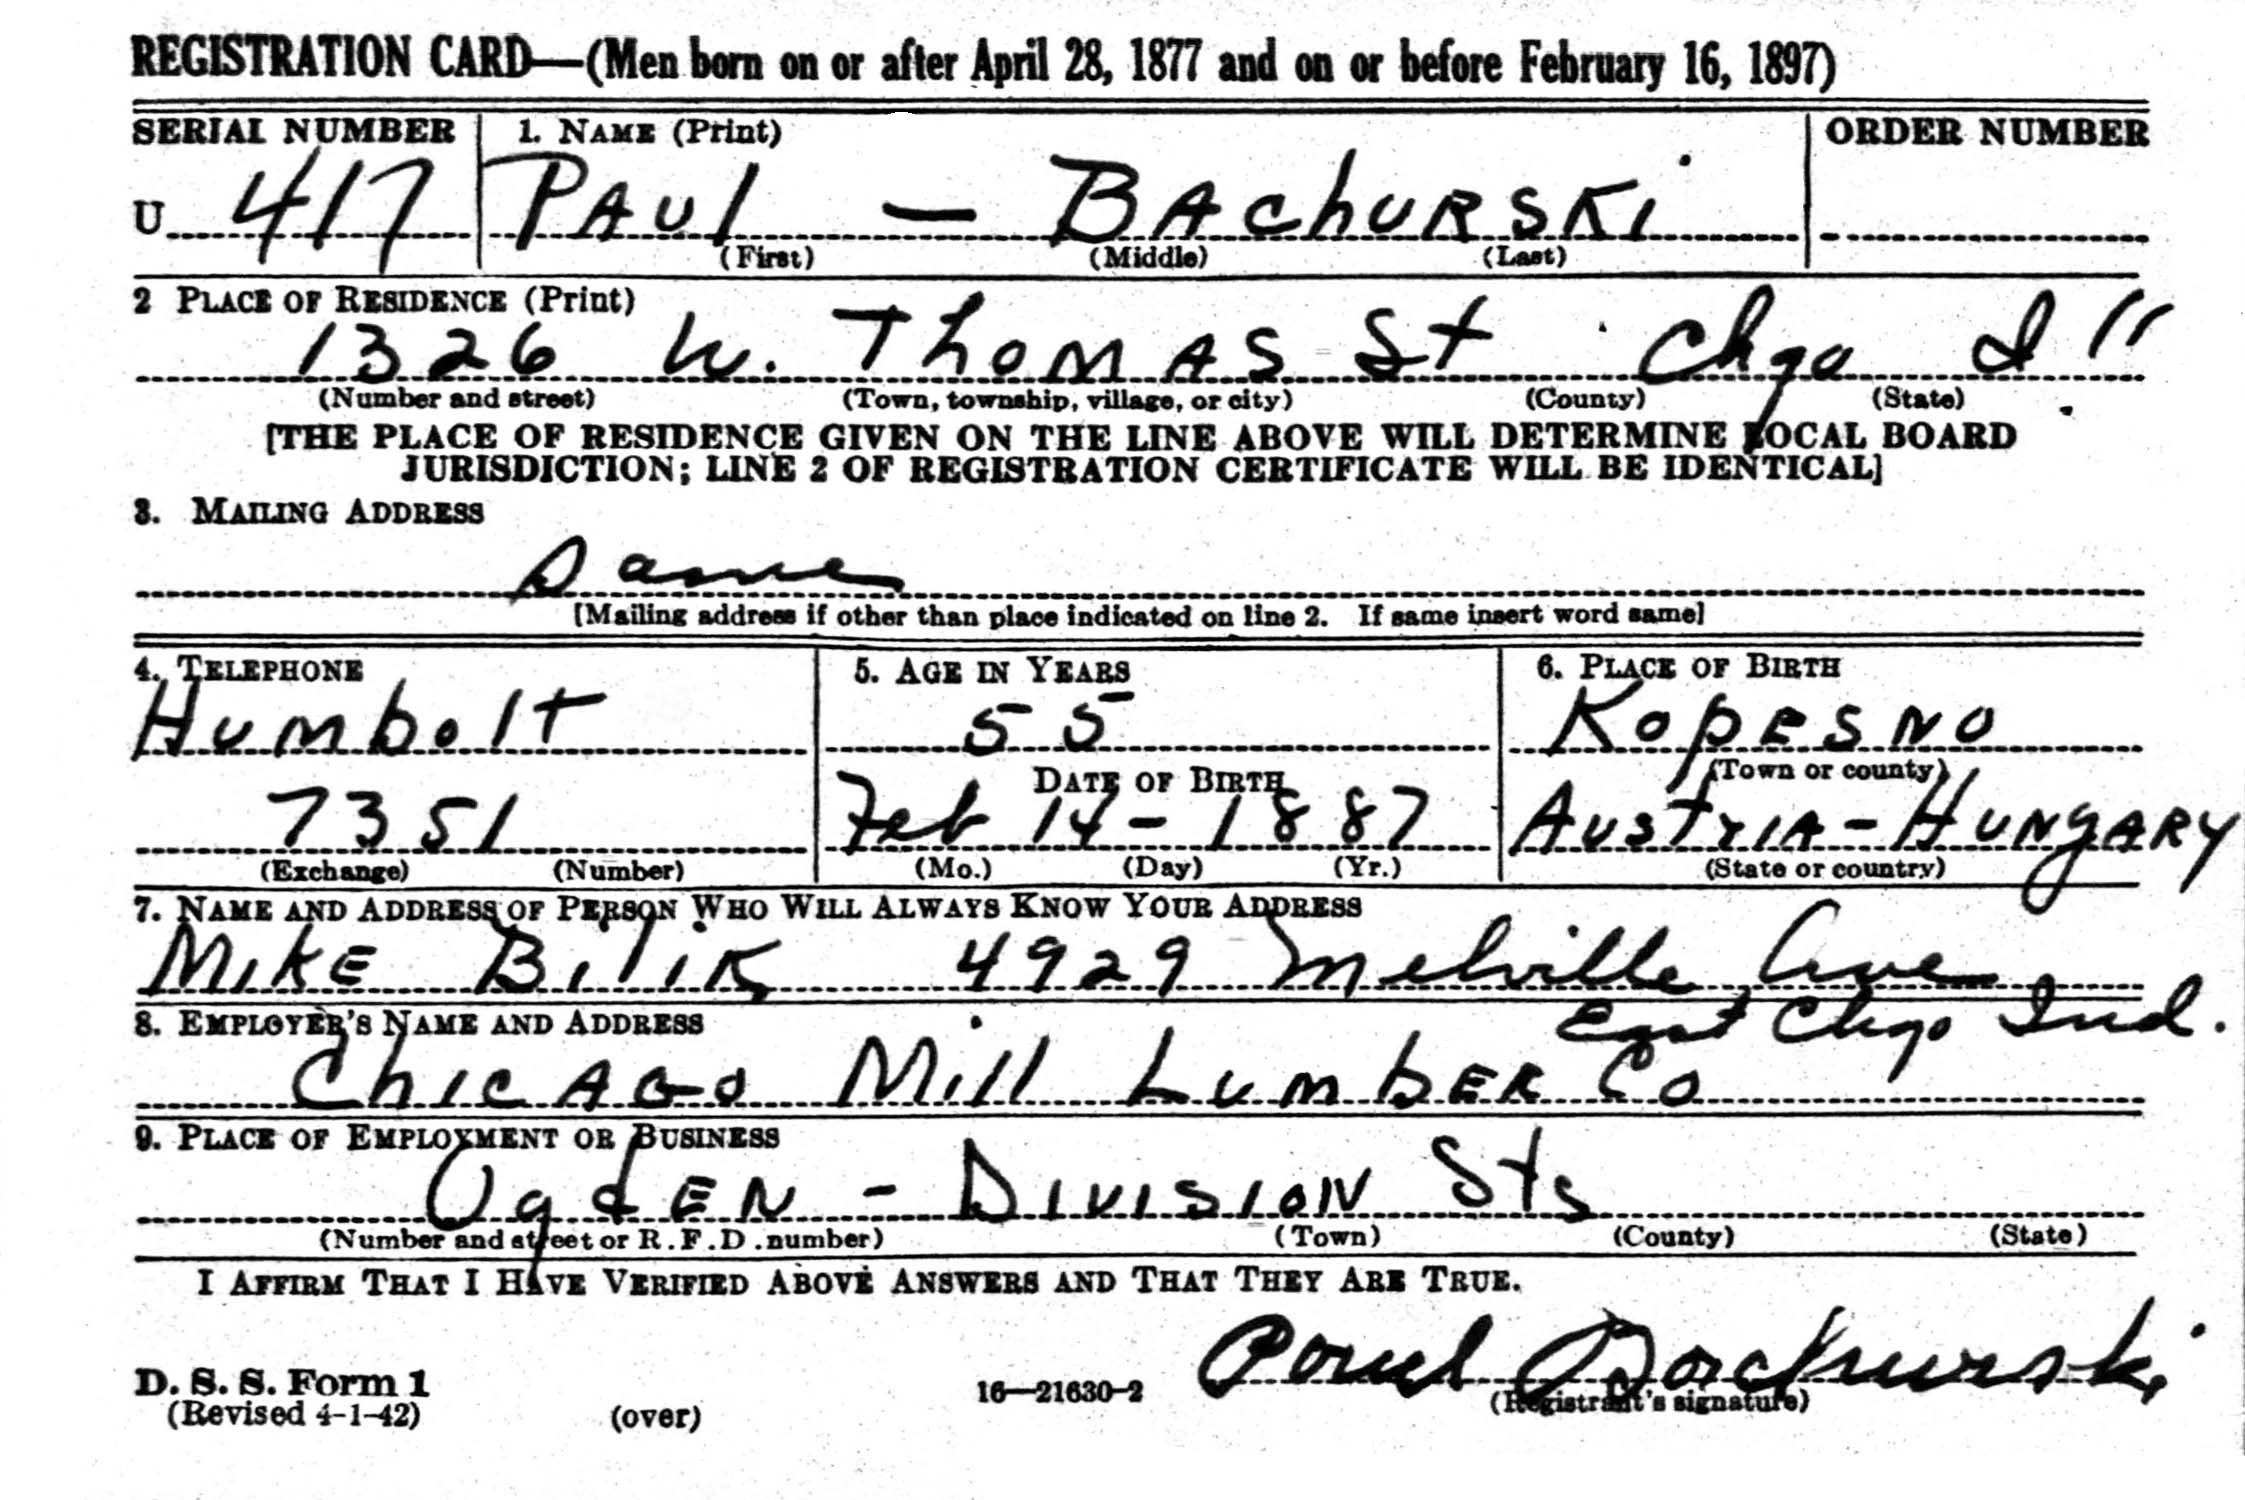 REGISTRATION CARD—(Men born on or after April 28, 1877 and on or before February 16, 1897)
SERIAL NUMBER 1. NAME (Print) ORDER NUMBER
U 417 PAUL — BACHURSKI
(First) (Middle) (Last)
2 PLACE OF RESIDENCE (Print)
1326 W. THOMAS St Chgo Ill
(Number and street) (Town, township, village, or city) (County) (State)
[THE PLACE OF RESIDENCE GIVEN ON THE LINE ABOVE WILL DETERMINE LOCAL BOARD
JURISDICTION; LINE 2 OF REGISTRATION CERTIFICATE WILL BE IDENTICAL]
3. MAILING ADDRESS
Same
[Mailing address if other than place indicated on line 2. If same insert word same]
4. TELEPHONE 5. AGE IN YEARS 6. PLACE OF BIRTH
Humbolt 55 KOPESNO
DATE OF BIRTH (Town or county)
7351 Feb 14-1887 AUSTRIA-HUNGARY
(Exchange) (Number) (Mo.) (Day) (Yr.) (State or country)
7. NAME AND ADDRESS OF PERSON WHO WILL ALWAYS KNOW YOUR ADDRESS
MIKE BILIK, 4929 Melville Ave
East Chgo Ind.
8. EMPLOYER'S NAME AND ADDRESS
CHICAGO Mill LUMBER Co
9. PLACE OF EMPLOYMENT OR BUSINESS
OgdEN - DIVISION Sts
(Number and street or R.F.D. number) (Town) (County) (State)
I AFFIRM THAT I HAVE VERIFIED ABOVE ANSWERS AND THAT THEY ARE TRUE.
Paul Bachurski
D. S. S. Form 1 16—21630-2 (Registrant's signature)
(Revised 4-1-42) (over)